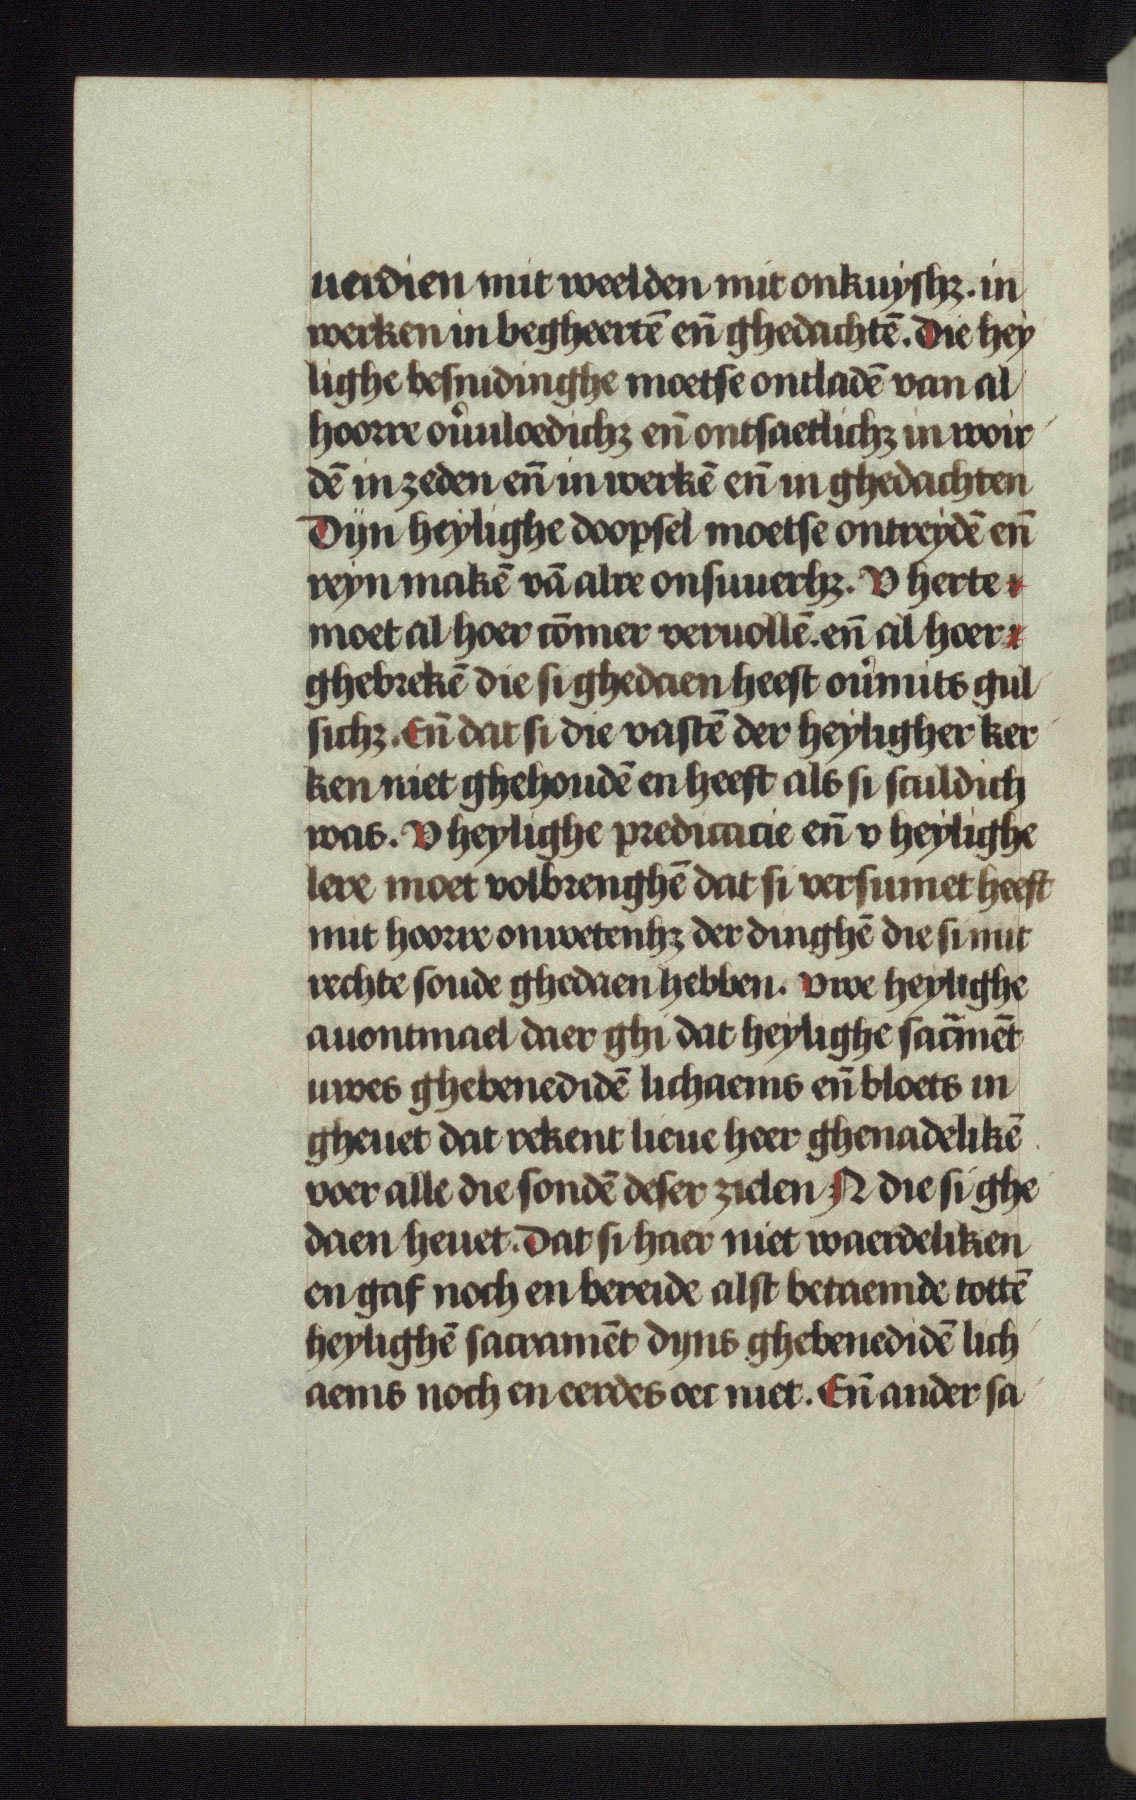 uerdien mit weelden mit onkuyshꝫ. in
werken in begheertē en̄ ghedachtē. Die hey
lighe besnidinghe moetse ontladē van al
hoorre ou̾uloedichꝫ en̄ ontsaetlichꝫ in woir
dē in zeden en̄ in werkē en̄ in ghedachten
Dijn heylighe doopsel moetse ontreydē en̄
reyn makē vā alre onsuuerhꝫ. V herte
moet al hoer cōmer veruollē. en̄ al hoer
ghebrekē die si ghedaen heeft ou̾mits gul
sichꝫ. En̄ dat si die vastē der heyligher ker
ken niet ghehoudē en heeft als si sculdich
was. V heylighe predicacie en̄ v heylighe
lere moet volbrenghē dat si versumet heeft
mit hoorre onwetenhꝫ der dinghē die si mit
rechte soude ghedaen hebben. Vwe heylighe
auontmael daer ghi dat heylighe sac̄mēt
uwes ghebenedidē lichaems en̄ bloets in
gheuet dat rekent lieue heer ghenadelikē
voer alle die sondē deser zielen N die si ghe
daen heuet. Dat si haer niet waerdeliken
en gaf noch en bereide alst betaemde tottē
heylighē sacramēt dijns ghebenedidē lich
aems noch en eerdes oec niet. En̄ ander sa